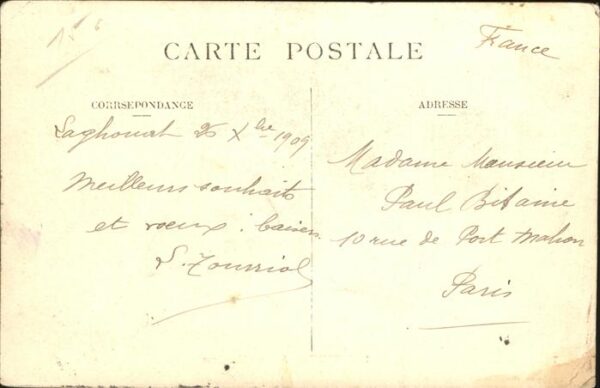 France
CARTE POSTALE
CORRSEPONDANCE
Laghouat 26 Xbre 1909
Meilleurs souhaits
et voeux : baisers
ADRESSE
Madame Monsieur
Paul Bitaine
10 rue de Port Mahon
Paris